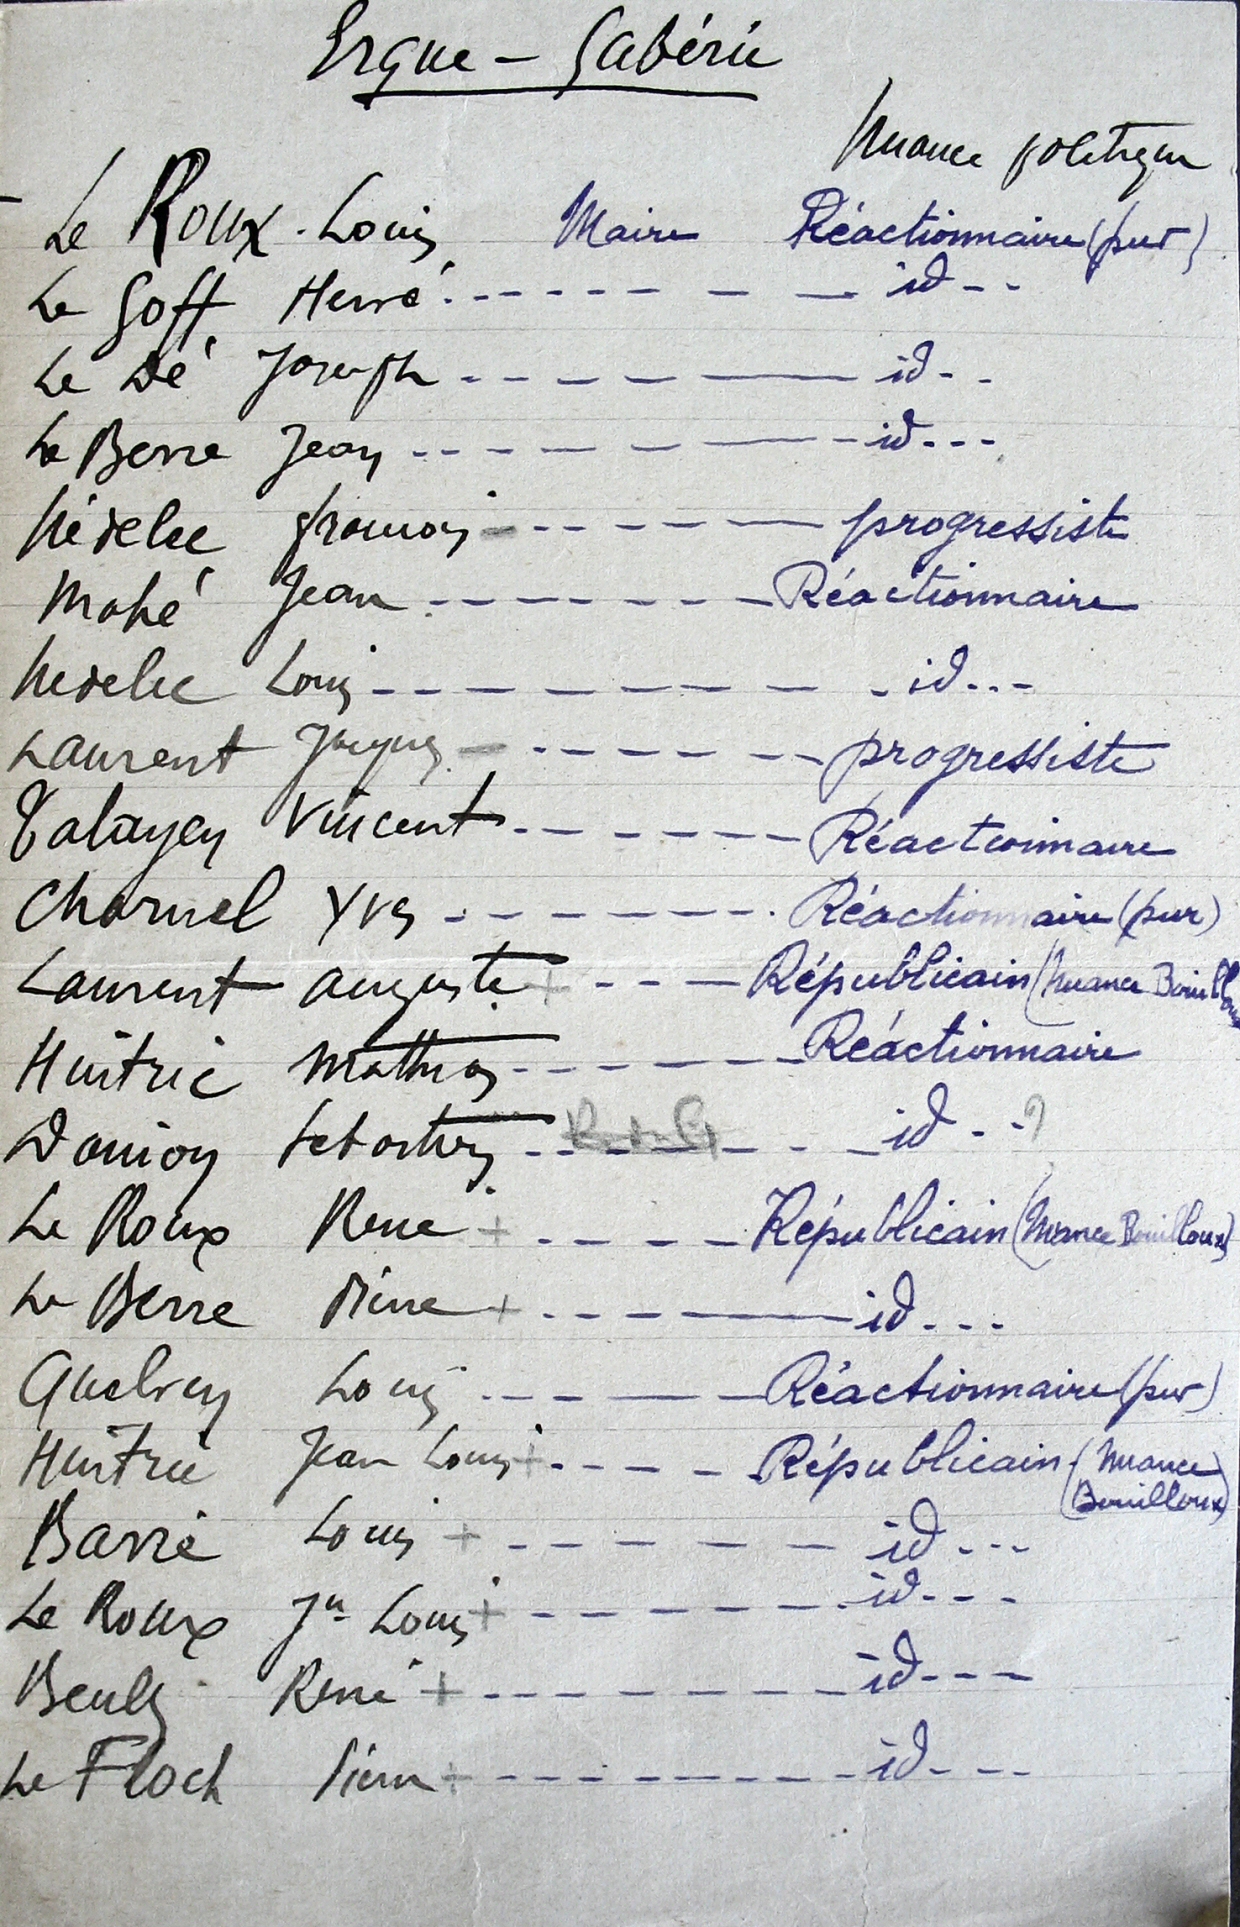 Ergue - Gabéric
Nuance politique
Le Roux Louis Maire Réactionnaire (pur)
Le Goff Hervé id
Le Dé Joseph id
Le Berre Jean id
Nédelec François progressiste
Mahé Jean Réactionnaire
Nedelec Louis id
Laurent Jacques progressiste
Talayen Vincent Réactionnaire
Charuel Yves Réactionnaire (pur)
Laurent auguste + Républicain (Nuance Bouilloux
Huitric Mathias Réactionnaire
Daniou Sebastien id ?
Le Roux Rene + Républicain (Nuance Bouilloux)
Le Berre Pierre + id
Quelven Louis Réactionnaire (pur)
Huitric Jean Louis + Républicain (Nuance
Bouilloux)
Barré Louis + id
Le Roux Jn Louis + id
Beulz René + id
Le Floch Pierre + id